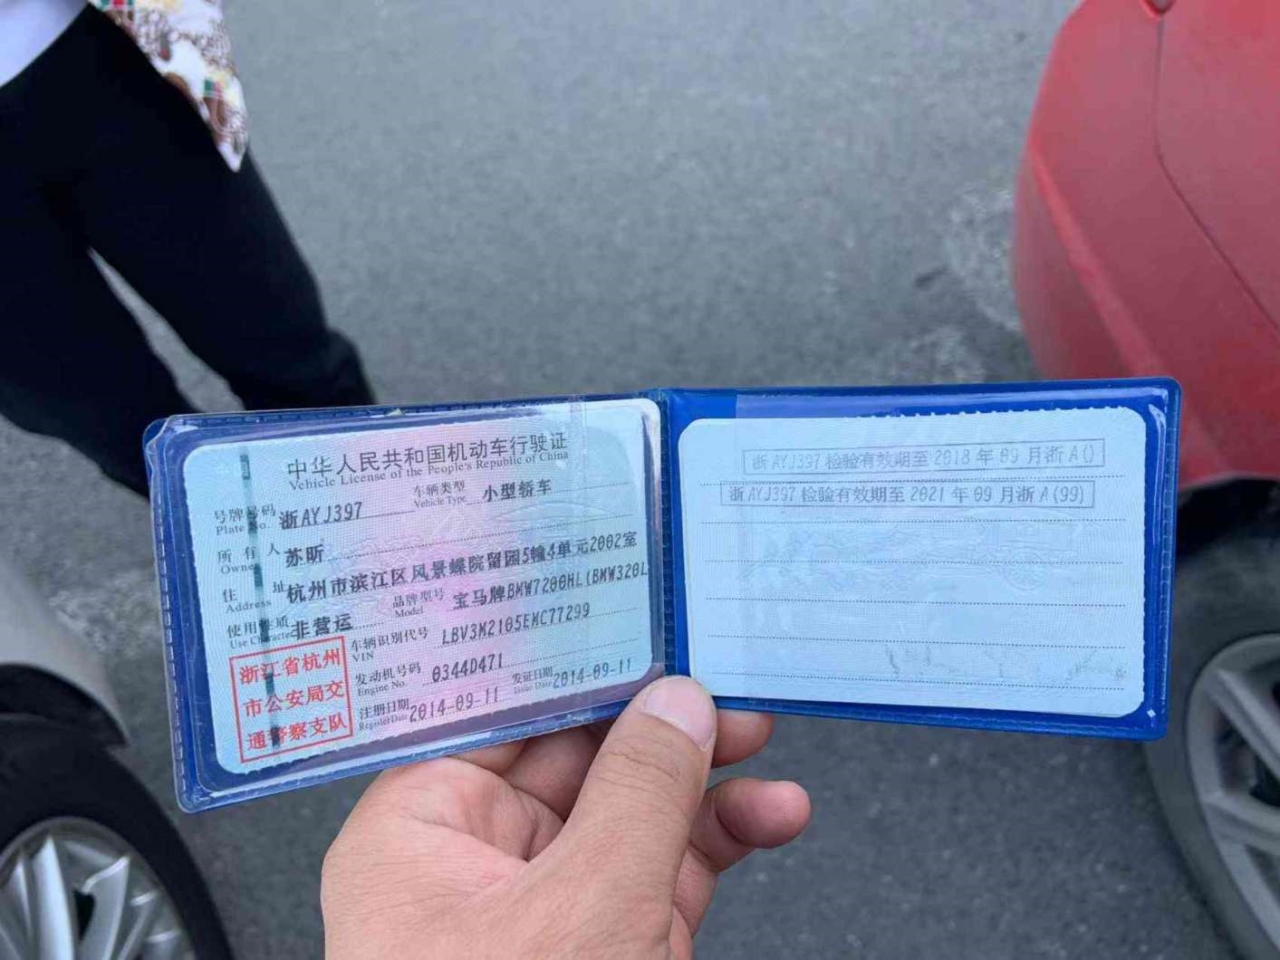 中华人民共和国机动车行驶证
Vehicle License of the People's Republic of China
号牌号码 浙AYJ397 车辆类型 小型轿车
Plate No. Vehicle Type
所有人 苏昕
Owner
住址 杭州市滨江区风景蝶院留园5幢4单元2002室
Address
使用性质 非营运 品牌型号 宝马牌BMW7200HL(BMW320L
Use Character Model
车辆识别代号 LBV3M2105EMC77299
VIN
发动机号码 0344D471 发证日期 2014-09-11
Engine No. Issue Date
注册日期 2014-09-11
Register Date
浙江省杭州
市公安局交
通警察支队
浙AYJ397检验有效期至2018年09月浙A()
浙AYJ397检验有效期至2021年09月浙A(99)